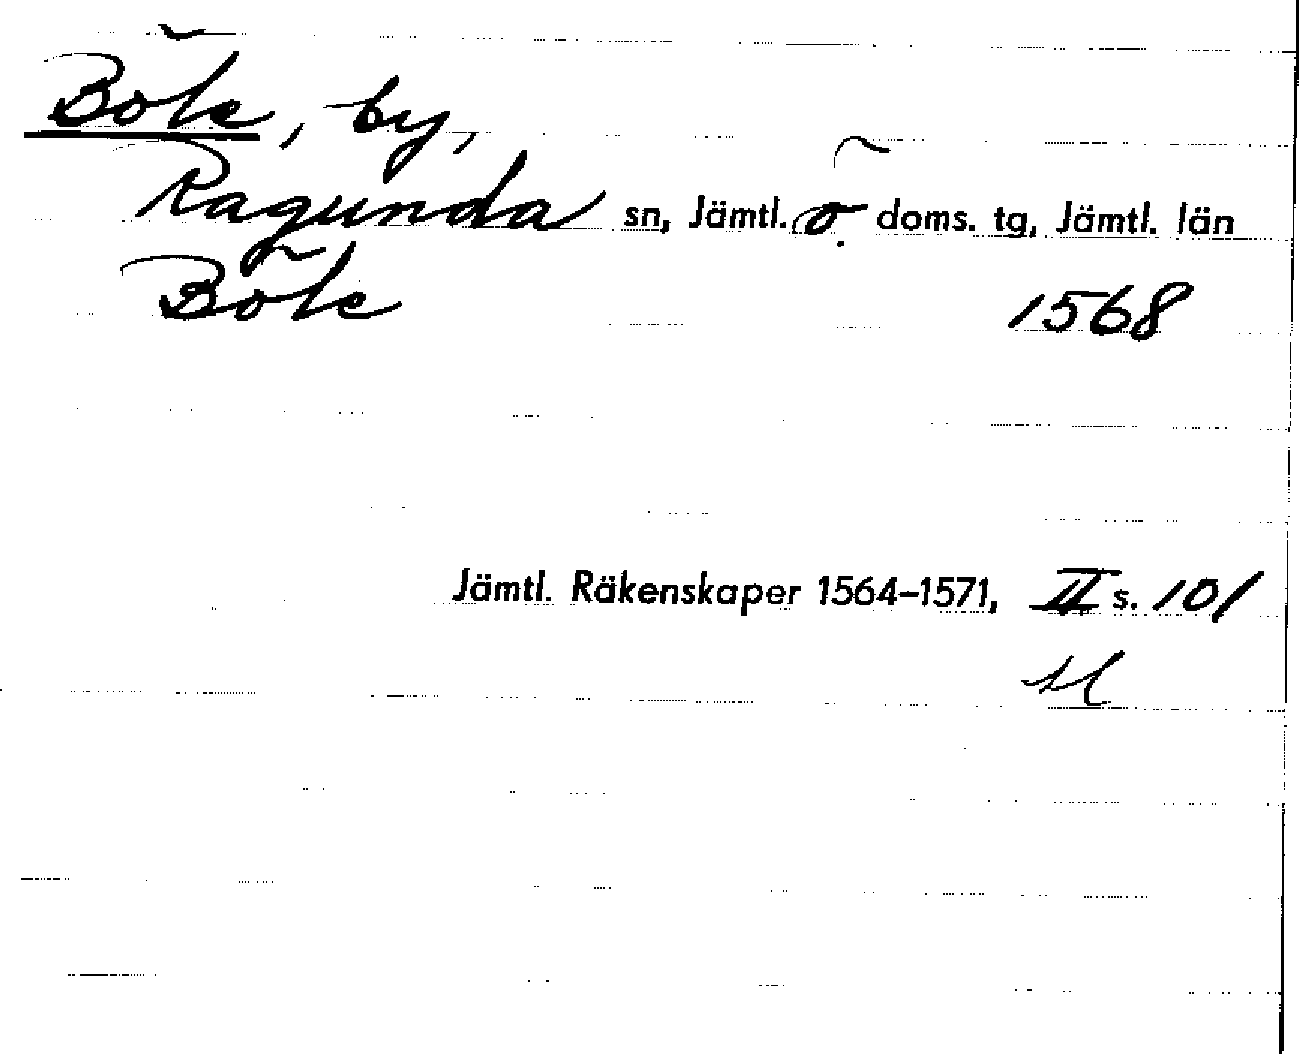 Böle, by,
Ragunda sn, Jämtl. ö. doms. tg, Jämtl. län
Böle 1568
Jämtl. Räkenskaper 1564–1571, II s. 101